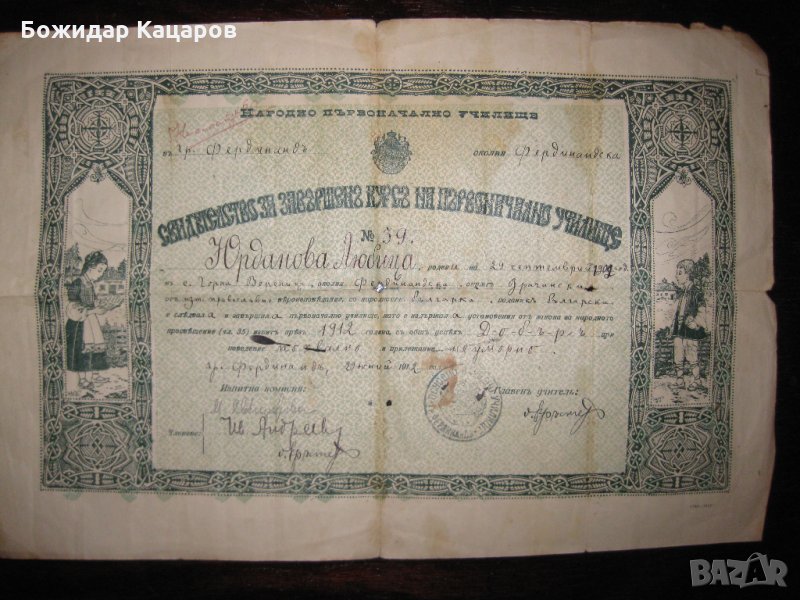 Божидар Кацаров
НАРОДНО ПЪРВОНАЧАЛНО УЧИЛИЩЕ
въ гр. Фердинандъ околия Фердинандска
СВИДѢТЕЛСТВО ЗА ЗАВЪРШЕНЪ КУРСЪ НА ПЪРВОНАЧАЛНО УЧИЛИЩЕ
№ 39.
Юрданова Любица, родена на 29 септемврий
въ с. Горна околия Фердинандска, окрѫгъ
отъ изт. православно вѣроизповѣдание, по народность българка,
е слѣдвала и завършила първоначално училище, като е издържала установения отъ закона за народното
просвѣщение (чл. 35) изпитъ презъ 1912 година съ общъ успѣхъ Д-о-б-ъ-р-ъ при
поведение и прилежание
гр. Фердинандъ, Юний 1912 год.
Изпитна комисия: Главенъ учитель:
Членове: Ив. Андреевъ
BAZAR